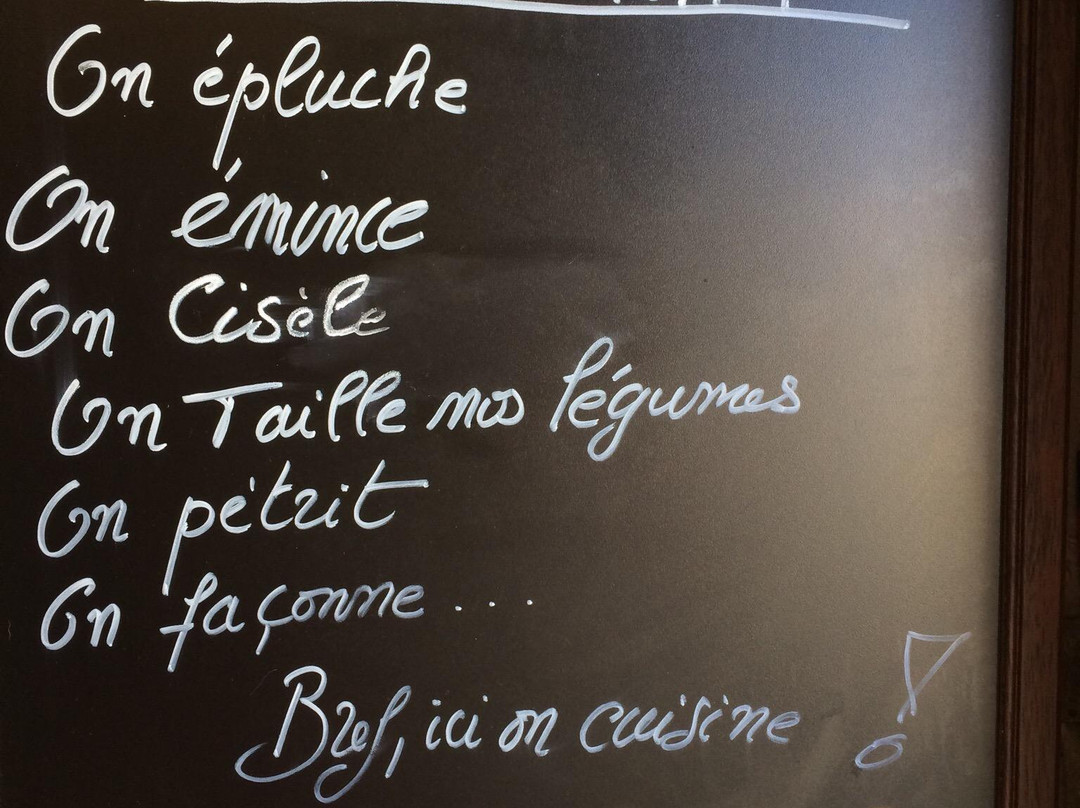 On épluche
On émince
On Cisèle
On Taille nos légumes
On pétrit
On façonne...
Bref, ici on cuisine !